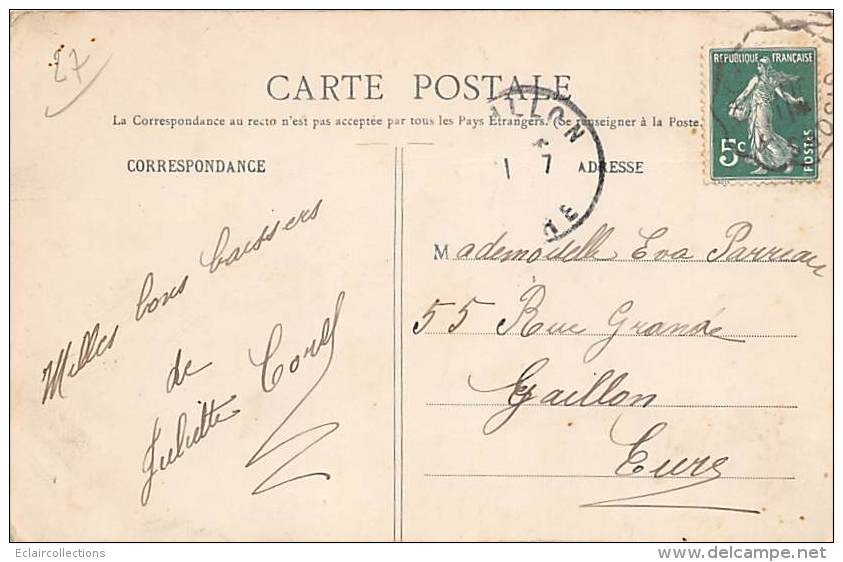 27
CARTE POSTALE
La Correspondance au recto n'est pas acceptée par tous les Pays Etrangers. (Se renseigner à la Poste.
CORRESPONDANCE
ADRESSE
REPUBLIQUE FRANÇAISE
5c
POSTES
ILLON
1 7
Milles bons baissers
de
Juliette
Mademoiselle Eva Parreau
55 Rue Grande
Gaillon
Eure
Eclaircollections
delcampe.net